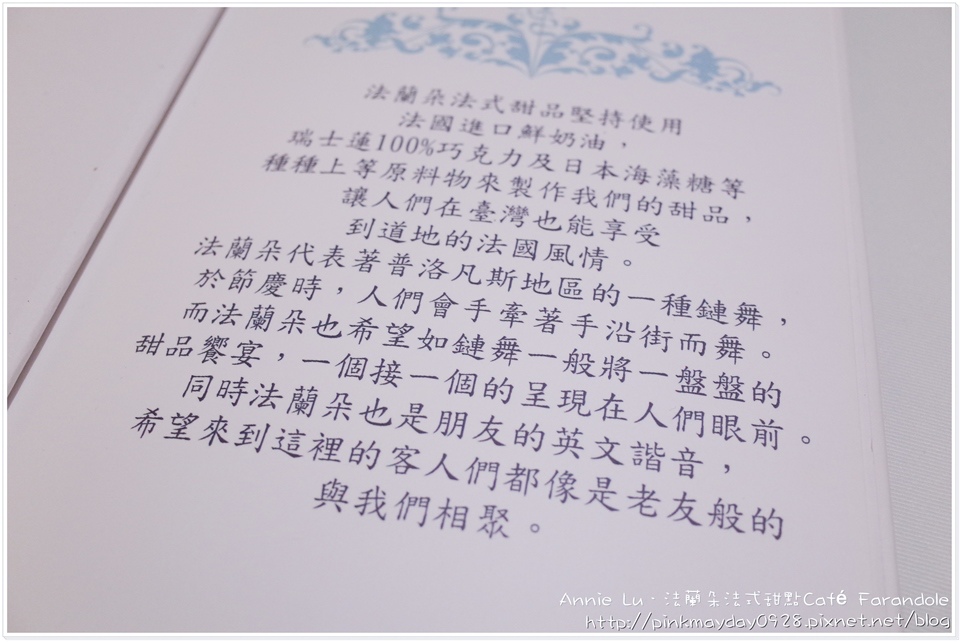 法蘭朵法式甜品堅持使用
法國進口鮮奶油，
瑞士蓮100%巧克力及日本海藻糖等
種種上等原料物來製作我們的甜品，
讓人們在臺灣也能享受
到道地的法國風情。
法蘭朵代表著普洛凡斯地區的一種鏈舞，
於節慶時，人們會手牽著手沿街而舞。
而法蘭朵也希望如鏈舞一般將一盤盤的
甜品饗宴，一個接一個的呈現在人們眼前。
同時法蘭朵也是朋友的英文諧音，
希望來到這裡的客人們都像是老友般的
與我們相聚。
Annie Lu．法蘭朵法式甜點Café Farandole
http://pinkmayday0928.pixnet.net/blog